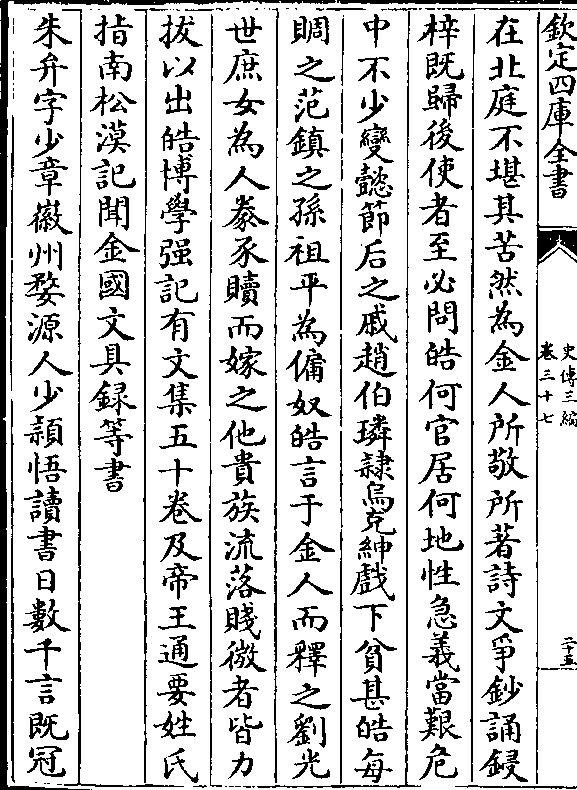 欽定四庫全書
史傳三編
卷三十七
二十五
在北庭不堪其苦然為金人所敬所著詩文爭鈔誦鋟
梓既歸後使者至必問皓何官居何地性急義當艱危
中不少變懿節后之戚趙伯璘隷烏克紳戲下貧甚皓每
賙之范鎮之孫祖平為傭奴皓言于金人而釋之劉光
世庶女為人豢豕贖而嫁之他貴族流落賤微者皆力
拔以出皓博學强記有文集五十卷及帝王通要姓氏
指南松漠記聞金國文具録等書
朱弁字少章徽州婺源人少頴悟讀書日數千言既冠